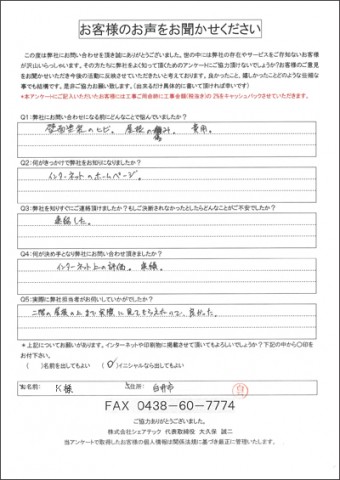 お客様のお声をお聞かせください
この度は弊社にお問い合わせを頂き誠にありがとうございました。世の中には弊社の存在やサービスをご存知ないお客様
が沢山いらっしゃいます。その方たちに弊社をよく知って頂くためのアンケートにご協力頂けないでしょうか?お客様のご意見
をお聞かせいただき今後の活動に反映させていただきたいと考えております。良かったこと、嬉しかったことなどの些細な
事でも結構です。是非ご協力お願い致します。(出来るだけ具体的に書いて頂ければ幸いです)
*本アンケートにご記入いただいたお客様には工事ご用命時に工事金額(税抜き)の2%をキャッシュバックさせていただきます。
Q1:弊社にお問い合わせになる前にどんなことで悩んでいましたか?
壁面塗装のヒビ。屋根の傷み。費用。
Q2:何がきっかけで弊社をお知りになりましたか?
インターネットのホームページ。
Q3:弊社を知りすぐにご連絡頂けましたか?もしご決断されなかったとしたらどんなことがご不安でしたか?
連絡した。
Q4:何が決め手となり弊社にお問い合わせ頂きましたか?
インターネット上の評価。実績。
Q5:実際に弊社担当者がお伺いしていかがでしたか?
二階の屋根の上まで実際に見てもらえたので、良かった。
*上記についてお願いがあります。インターネットや印刷物に掲載させて頂いてもよろしいでしょうか?下記の中から〇印を
お付け下さい。
( )名前を出してもよい (〇)イニシャルなら出してもよい
お名前: K様 ご住所: 白井市
FAX 0438-60-7774
ご協力ありがとうございました。
株式会社シェアテック 代表取締役 太久保 誠二
当アンケートで取得したお客様の個人情報は関係法規に基づき厳正に管理いたします。